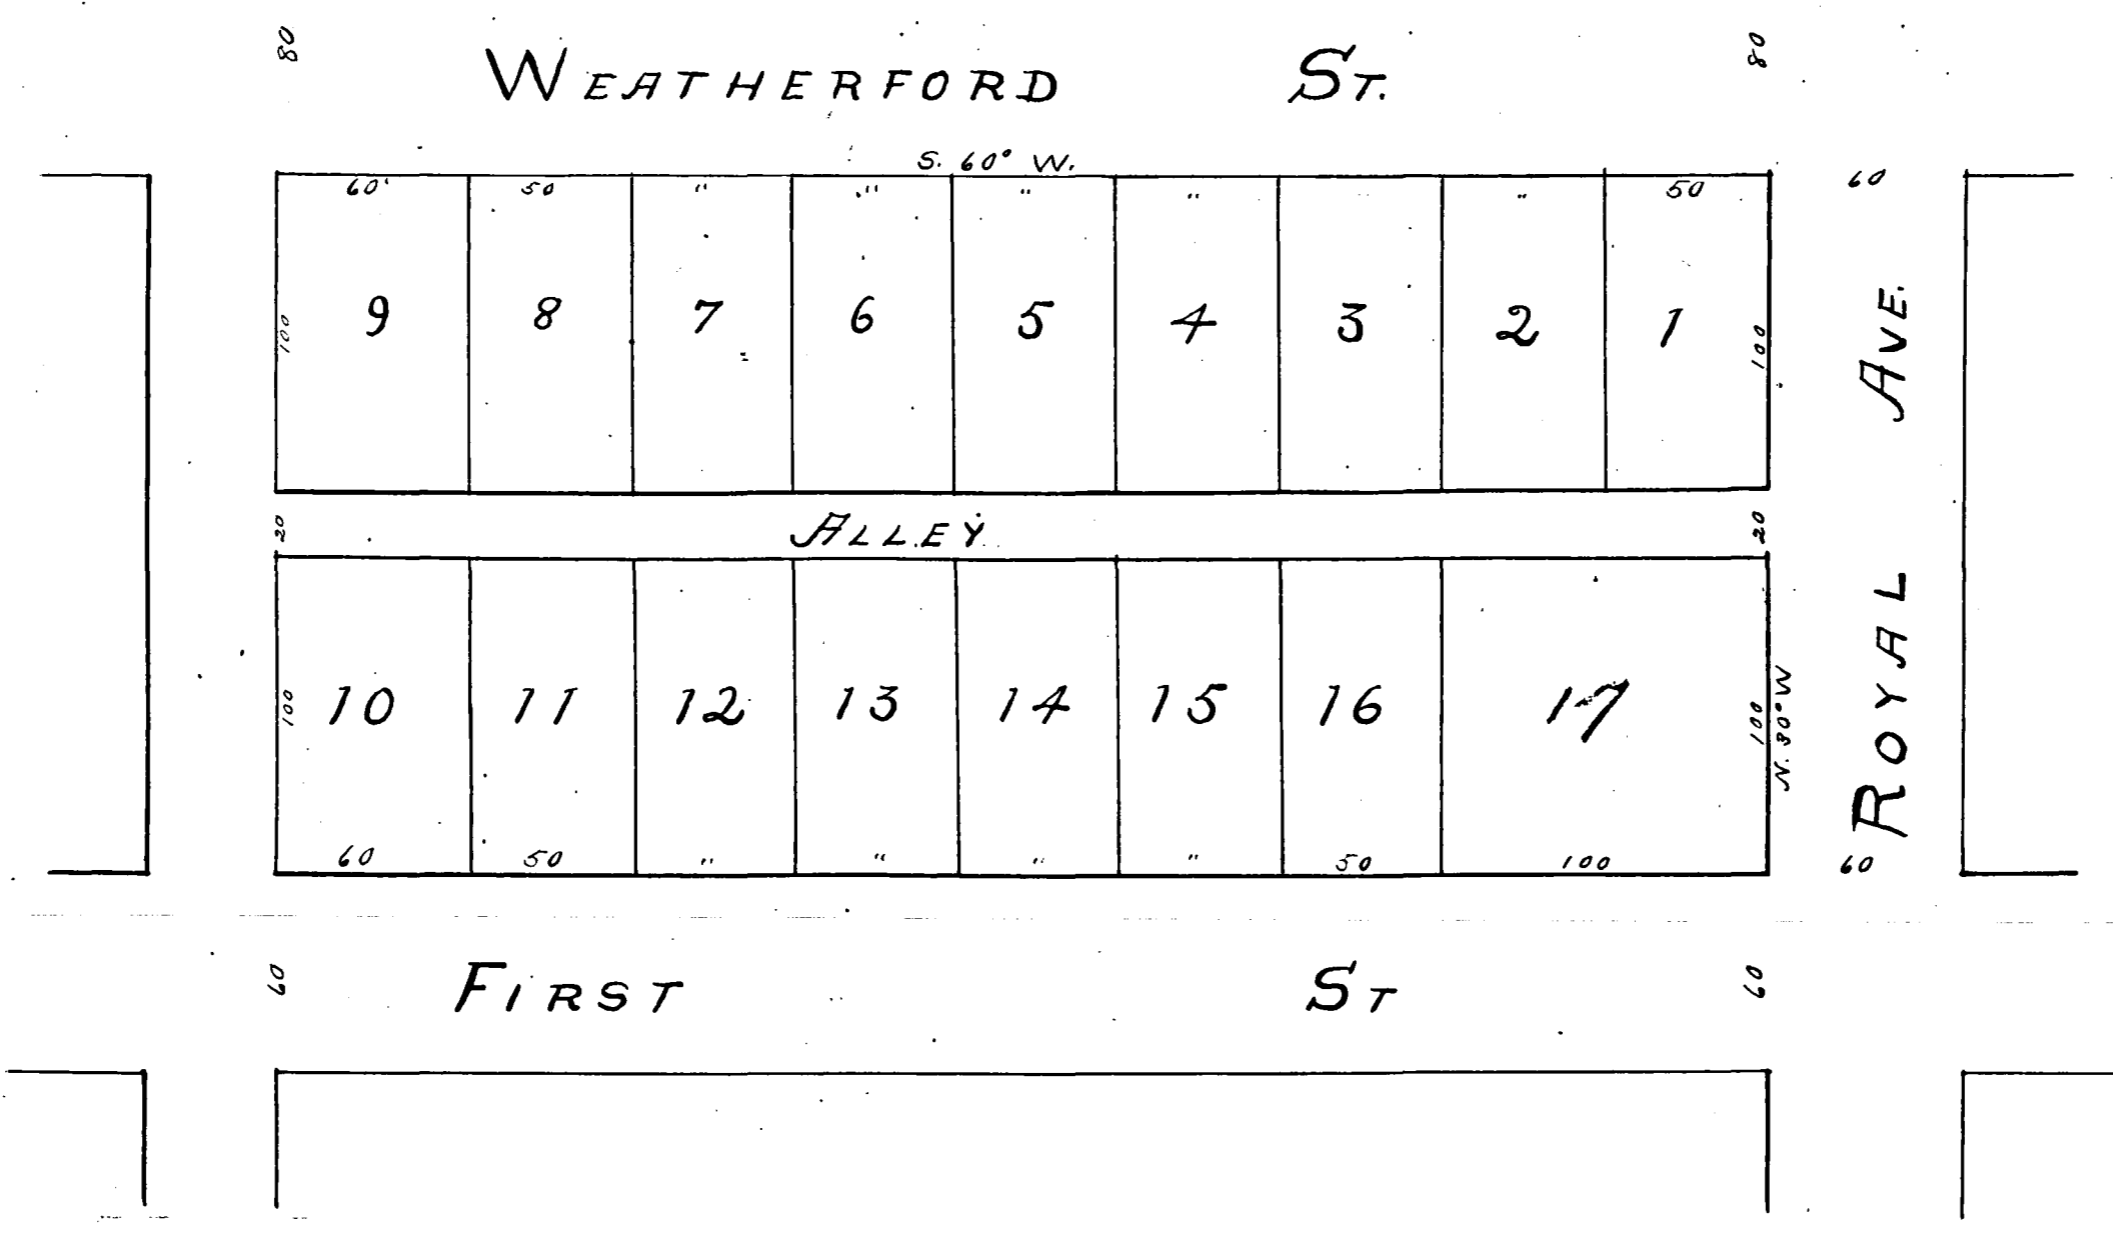 80 80
WEATHERFORD ST.
S. 60° W.
60' 50 " " " " " 50 60
9 8 7 6 5 4 3 2 1
100 100
ROYAL AVE.
20 ALLEY 20
10 11 12 13 14 15 16 17
100 100
N. 30° W
60 50 " " " " 50 100 60
60 60
FIRST ST